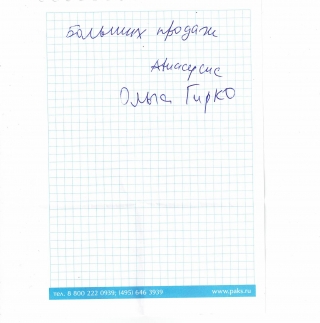 Больших продаж
Авиасервис
Ольга Гирко
тел. 8 800 222 0939; (495) 646 3939
www.paks.ru